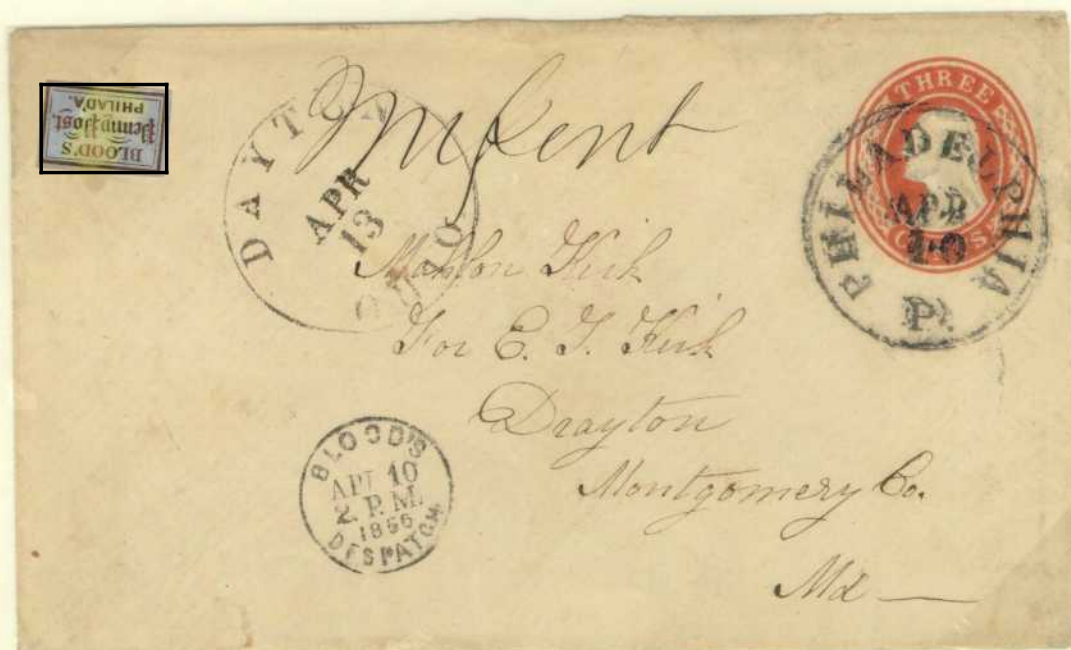 BLOOD'S
Penny Post.
PHILAD'A.
DAYTON
APR
13
OHIO
THREE
CENTS
PHILADELPHIA
APR
10
Pa.
Mahlon Kirk
For E. T. Kirk
Drayton
Montgomery Co.
Md —
BLOOD'S
APL 10
2 P.M.
1856
DESPATCH